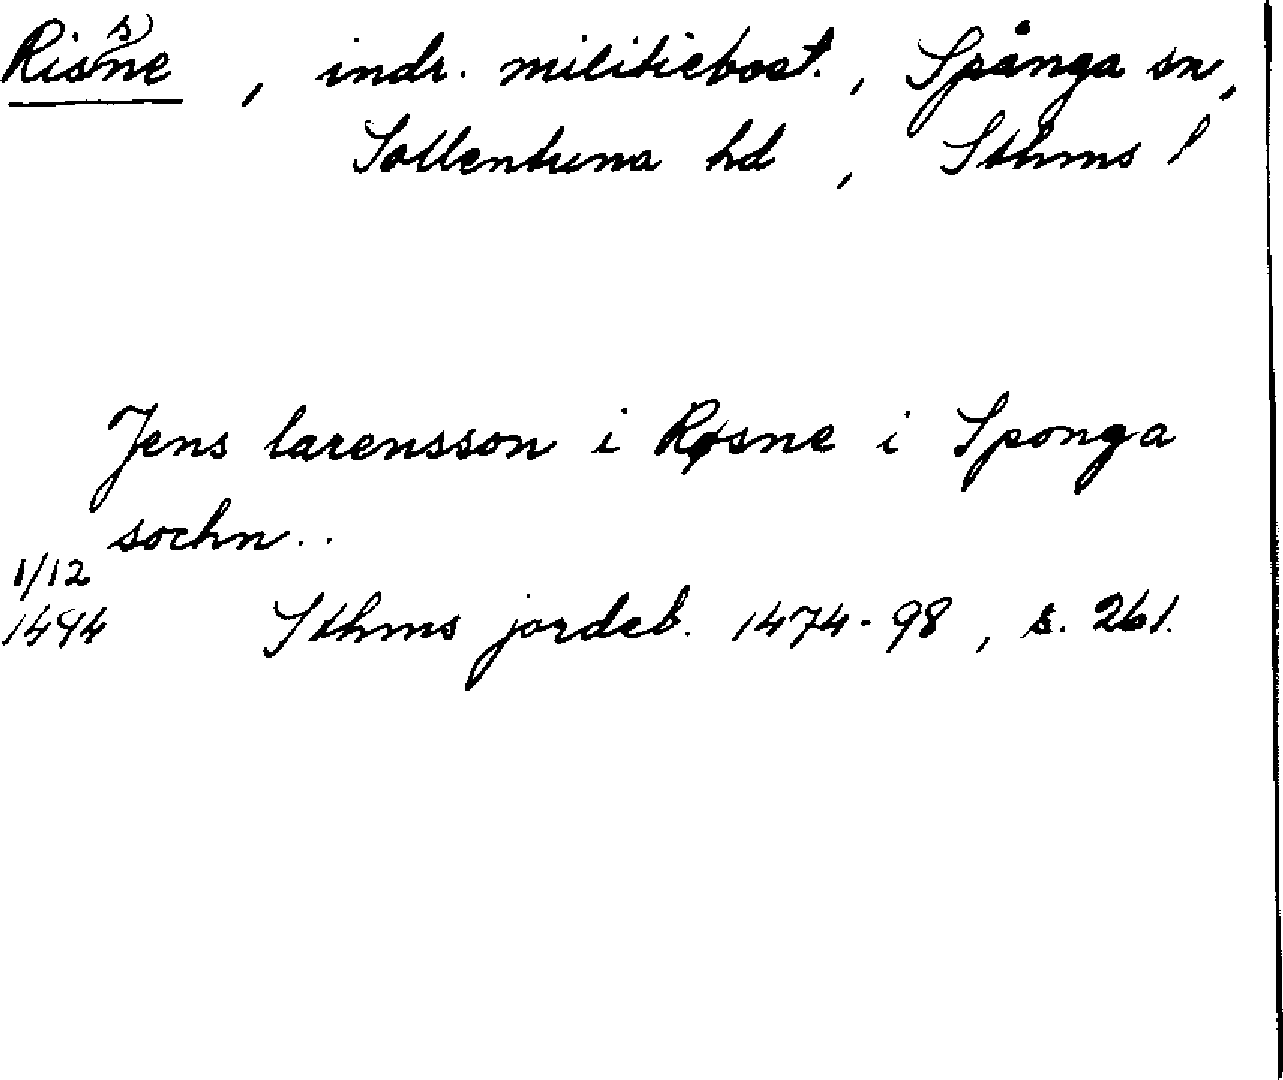 Ris(s)ne, indr. militiebost., Spånga sn,
Sollentuna hd, Sthms l
Jens larensson i Røsne i Sponga
sochn..
1/12
1494 Sthms jordeb. 1474-98, s. 261.